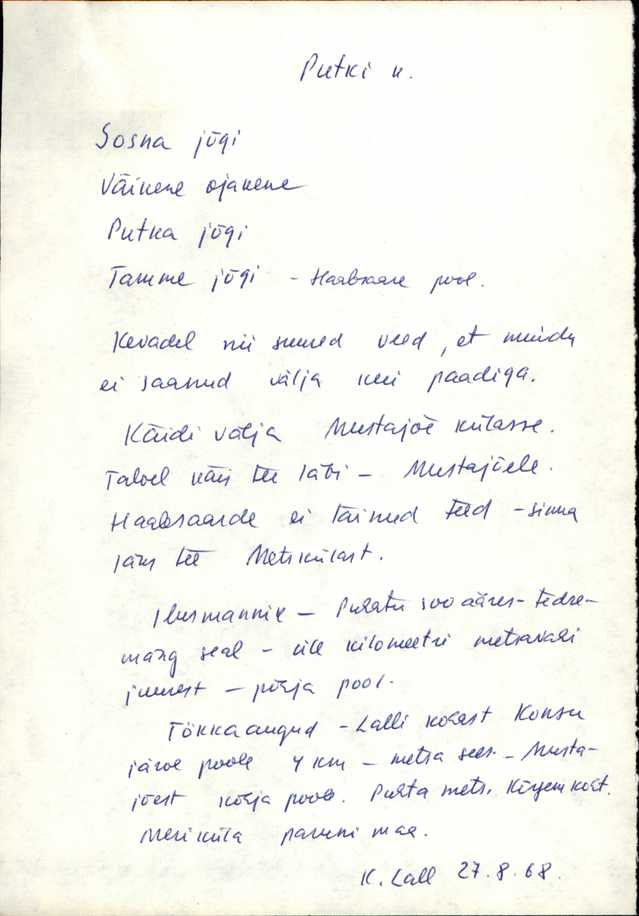 Putki k.
Sosna jõgi
Väikene ojakene
Putka jõgi
Tamme jõgi - Haabsaare pool.
Kevadel nii suured veed, et muidu
ei saanud välja kui paadiga.
Käidi välja Mustajõe külasse.
Talvel käis tee läbi - Mustajõele.
Haabsaarde ei läinud teed - sinna
läks tee Metskülast.
Ilusmannik - Puhatu soo ääres - tedre-
mäng seal - üle kilomeetri metsavahi
juurest - põhja pool.
Tõkkaaugud - Lalli kohast Konsu
järve poole 4 km - metsa sees - Musta-
jõest põhja pool. mets.
Meriküla paruni maa.
K. Lall 27.8.68.